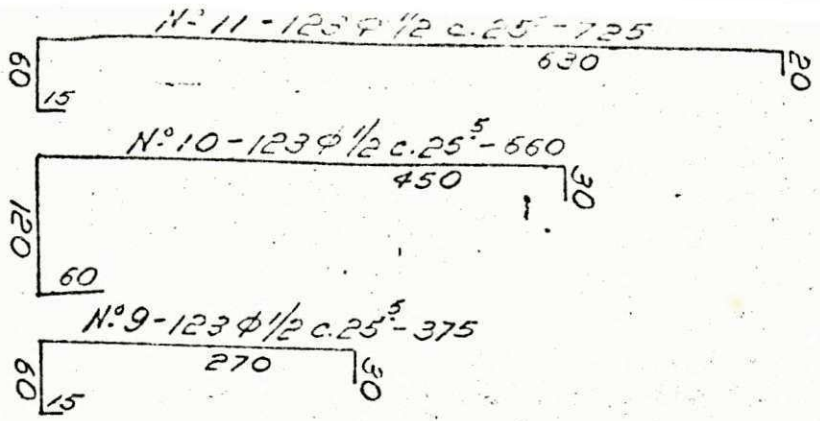 Nº 11 - 123 φ 1/2 c. 25⁵ - 725
630
20
60
15
Nº 10 - 123 φ 1/2 c. 25⁵ - 660
450
30
120
60
Nº 9 - 123 φ 1/2 c. 25⁵ - 375
270
30
60
15